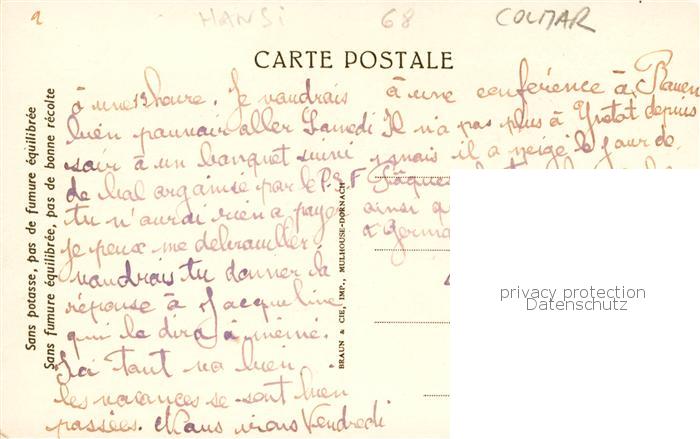 HANSI 68 COLMAR
CARTE POSTALE
Sans potasse, pas de fumure équilibrée
Sans fumure équilibrée, pas de bonne récolte
à une heure. Je voudrais
bien pouvoir aller Samedi
soir à un banquet suivi
de bal organisé par le P.S.F
tu n'aurai rien a payer
je peux me debrouiller
voudrais tu donner la
réponse à Jacqueline
qui le dira à mémé.
Ici tout va bien
les vacances se sont bien
passées. Nous irons Vendredi
à une conférence à Rouen
Il n'a pas plus à Yvetot depuis
mais il a neigé le jour de
Pâques
ainsi
a
BRAUN & CIE, IMP., MULHOUSE-DORNACH
privacy protection
Datenschutz